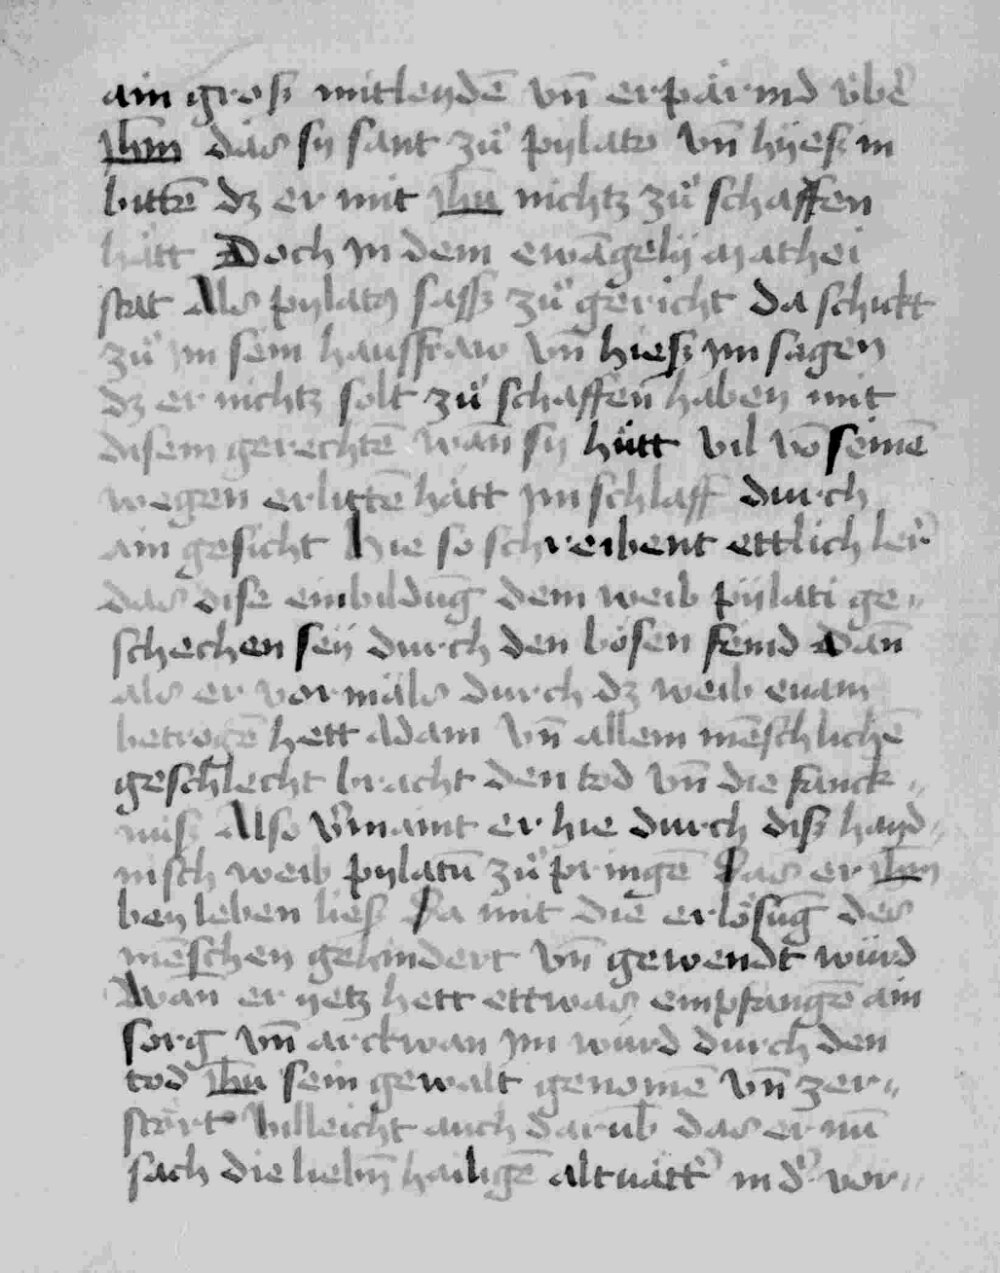 ain gros̈ß mitleydē vn̄ erpärmd vbe᷑
jhm̄ das sy sant zů pylato vn̄ hyeß in
bittē dz er mit jhū nichtz zů schaffen
hätt Doch jn dem ewāgelij mathei
stat Als pylatꝰ saß zů gericht Da schickt
zů jm sein hausfraw vn̄ hieß jm sagen
dz er nichtz solt zů schaffen haben mit
disem gerechtē wān sy hütt vil vō seinē
wegen erlittē hätt jm schlaff durch
ain gesicht Hie so schreibent ettlich lere᷑
das dise einbildūg dem weib pylati ge„
schechen sey durch den bösen feind Dan̄
als er vormāls durch dz weib euam
betrogē hett Adam vn̄ allem mēschlichē
geschlecht bracht den tod vn̄ die fanck„
niß Also v᷑maint er hie durch diß hayd„
nisch weib pylatū zů pringē Das er jhm̄
bey leben ließ Da mit die erlösūg des
mēschen gehindert vn̄ gewendt würd
Wān er yetz hett ettwas empfangē ain
sorg vn̄ arckwan jm würd durch den
tod jhū sein gewalt genomē vn̄ zer„
stört villeicht auch darūb das er nū
sach die liebn̄ hailigē altvätt᷑ in d᷑ vor„